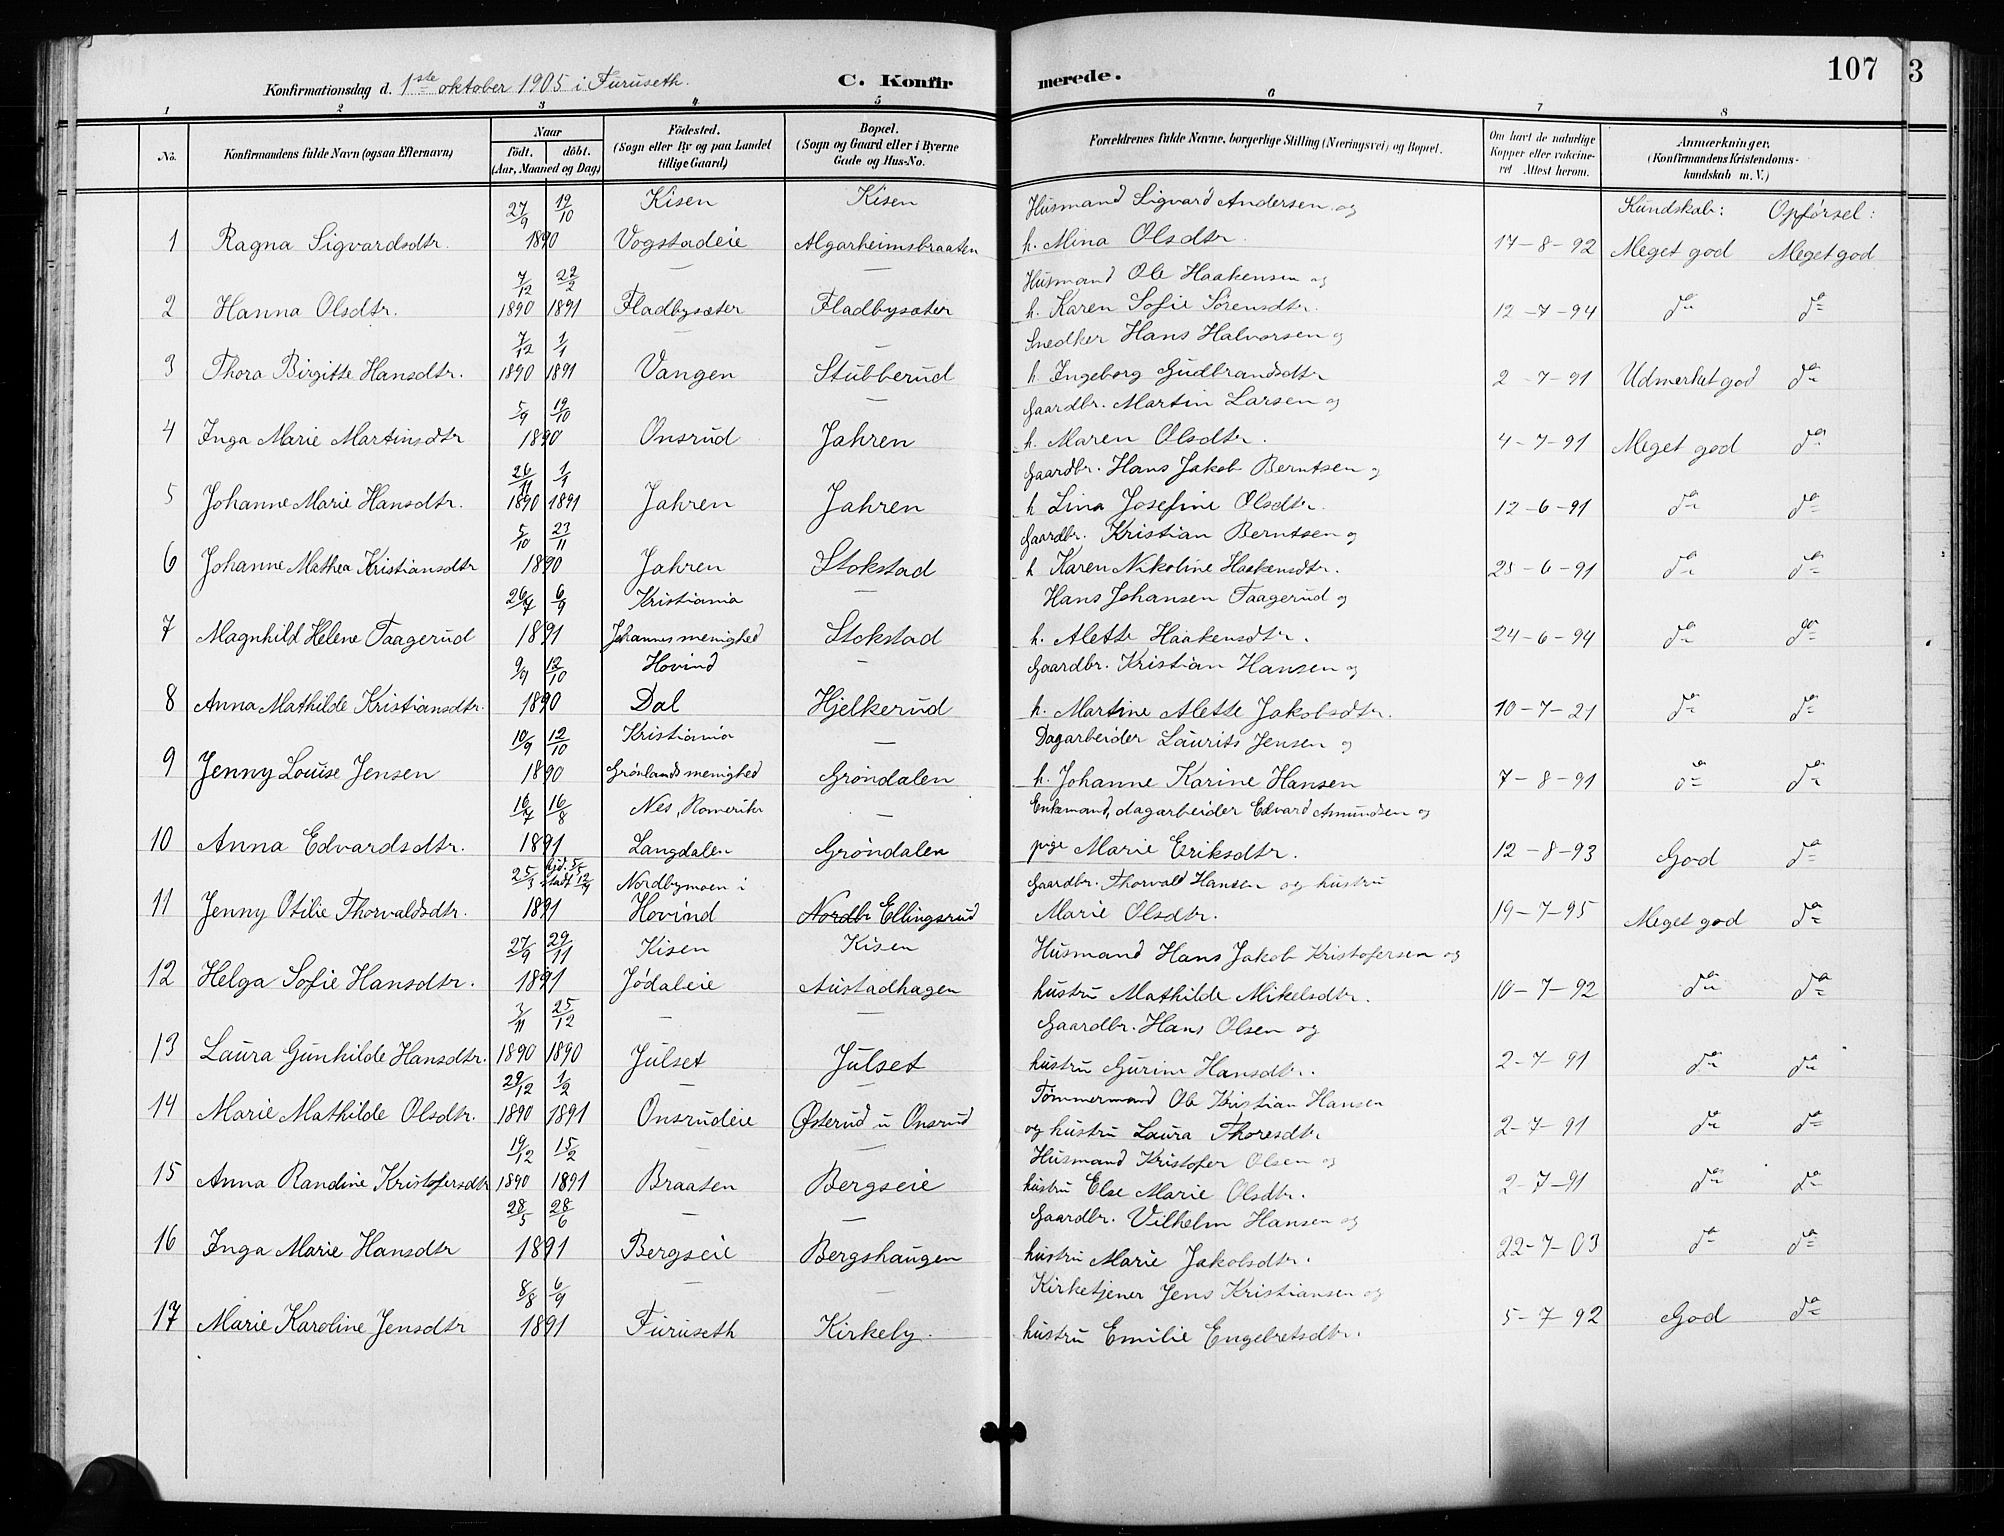 107 3
Konfirmationsdag d. 1ste oktober 1905 i Furuseth. C. Konfirmerede.
1 2 3 4 5 6 7 8
No. Konfirmandens fulde Navn (ogsaa Efternavn) Naar födt. döbt. (Aar, Maaned og Dag) Födested. (Sogn eller By og paa Landet tillige Gaard) Bopæl. (Sogn og Gaard eller i Byerne Gade og Hus-No. Forældrenes fulde Navne, borgerlige Stilling (Næringsvei) og Bopæl. Om havt de naturlige Kopper eller vakcineret Attest herom. Anmerkninger. (Konfirmandens Kristendomskundskab m. V.)
27/9 19/10 Kisen Kisen Husmand Sigvard Andersen og Kundskab: Opførsel:
1 Ragna Sigvardsdtr. 1890 Vogstadeie Algarheimsbraaten h. Mina Olsdtr. 17-8-92 Meget god Meget god
7/12 22/2 — Husmand Ole Haakensen og
2 Hanna Olsdtr. 1890 1891 Fladbysæter Fladbysæter h. Karen Sofie Sörensdtr. 12-7-94 do do
7/12 1/1 — Snedker Hans Halvorsen og
3 Thora Birgitte Hansdtr. 1890 1891 Vangen Stubberud h. Ingeborg Gudbrandsdtr 2-7-91 Udmerket god do
5/9 19/10 — Gaardbr. Martin Larsen og
4 Inga Marie Martinsdtr 1890 Onsrud Jahren h. Maren Olsdtr. 4-7-91 Meget god do
26/11 1/1 Gaardbr. Hans Jakob Berntsen og
5 Johanne Marie Hansdtr. 1890 1891 Jahren Jahren h Lina Josefine Olsdtr. 12-6-91 do do
5/10 23/11 Gaardbr. Kristian Berntsen og
6 Johanne Mathea Kristiansdtr 1890 Jahren Stokstad h Karen Nikoline Haakensdtr. 25-6-91 do do
26/7 6/9 Kristiania — Hans Johansen Taagerud og
7 Magnhild Helene Taagerud 1891 Johannes menighed Stokstad h. Alette Haakensdtr. 24-6-94 do do
9/9 12/10 Hovind — Gaardbr. Kristian Hansen og
8 Anna Mathilde Kristiansdtr. 1890 Dal Hjelkerud h. Martine Alette Jakobsdtr. 10-7-21 do do
10/9 12/10 Kristiania — Dagarbeider Laurits Jensen og
9 Jenny Louise Jensen 1890 Grönlands menighed Gröndalen h. Johanne Karine Hansen 7-8-91 do do
16/7 16/8 Nes, Romerike — Enkemand, dagarbeider Edvard Asmundsen og
10 Anna Edvardsdtr. 1891 Langdalen Gröndalen pige Marie Eriksdtr. 12-8-93 God do
25/3 hjd. 5/5 stadf 12/7 Nordbymoen i Gaardbr. Thorvald Hansen og hustru
11 Jenny Otilie Thorvaldsdtr. 1891 Hovind Nordbr Ellingsrud Marie Olsdtr. 19-7-95 Meget god do
27/9 29/11 Kisen Kisen Husmand Hans Jakob Kristofersen og
12 Helga Sofie Hansdtr. 1891 Jødaleie Austadhagen hustru Mathilde Mikelsdtr. 10-7-92 do do
3/11 25/12 — — Gaardbr. Hans Olsen og
13 Laura Gunhilde Hansdtr. 1890 1890 Julset Julset hustru Gurine Hansdtr. 2-7-91 do do
29/12 1/2 — — Tömmermand Ole Kristian Hansen
14 Marie Mathilde Olsdtr. 1890 1891 Onsrudeie Østerud u Onsrud og hustru Laura Thoresdtr 2-7-91 do do
19/12 15/2 — — Husmand Kristofer Olsen og
15 Anna Randine Kristofersdtr 1890 1891 Braaten Bergseie hustru Else Marie Olsdtr. 2-7-91 do do
28/5 28/6 — — Gaardbr. Vilhelm Hansen og
16 Inga Marie Hansdtr 1891 Bergseie Bergshaugen hustru Marie Jakobsdtr. 22-7-03 do do
8/8 6/9 — Kirketjener Jens Kristiansen og
17 Marie Karoline Jensdtr 1891 Furuseth Kirkeby. hustru Emilie Engebretsdtr. 5-7-92 God do